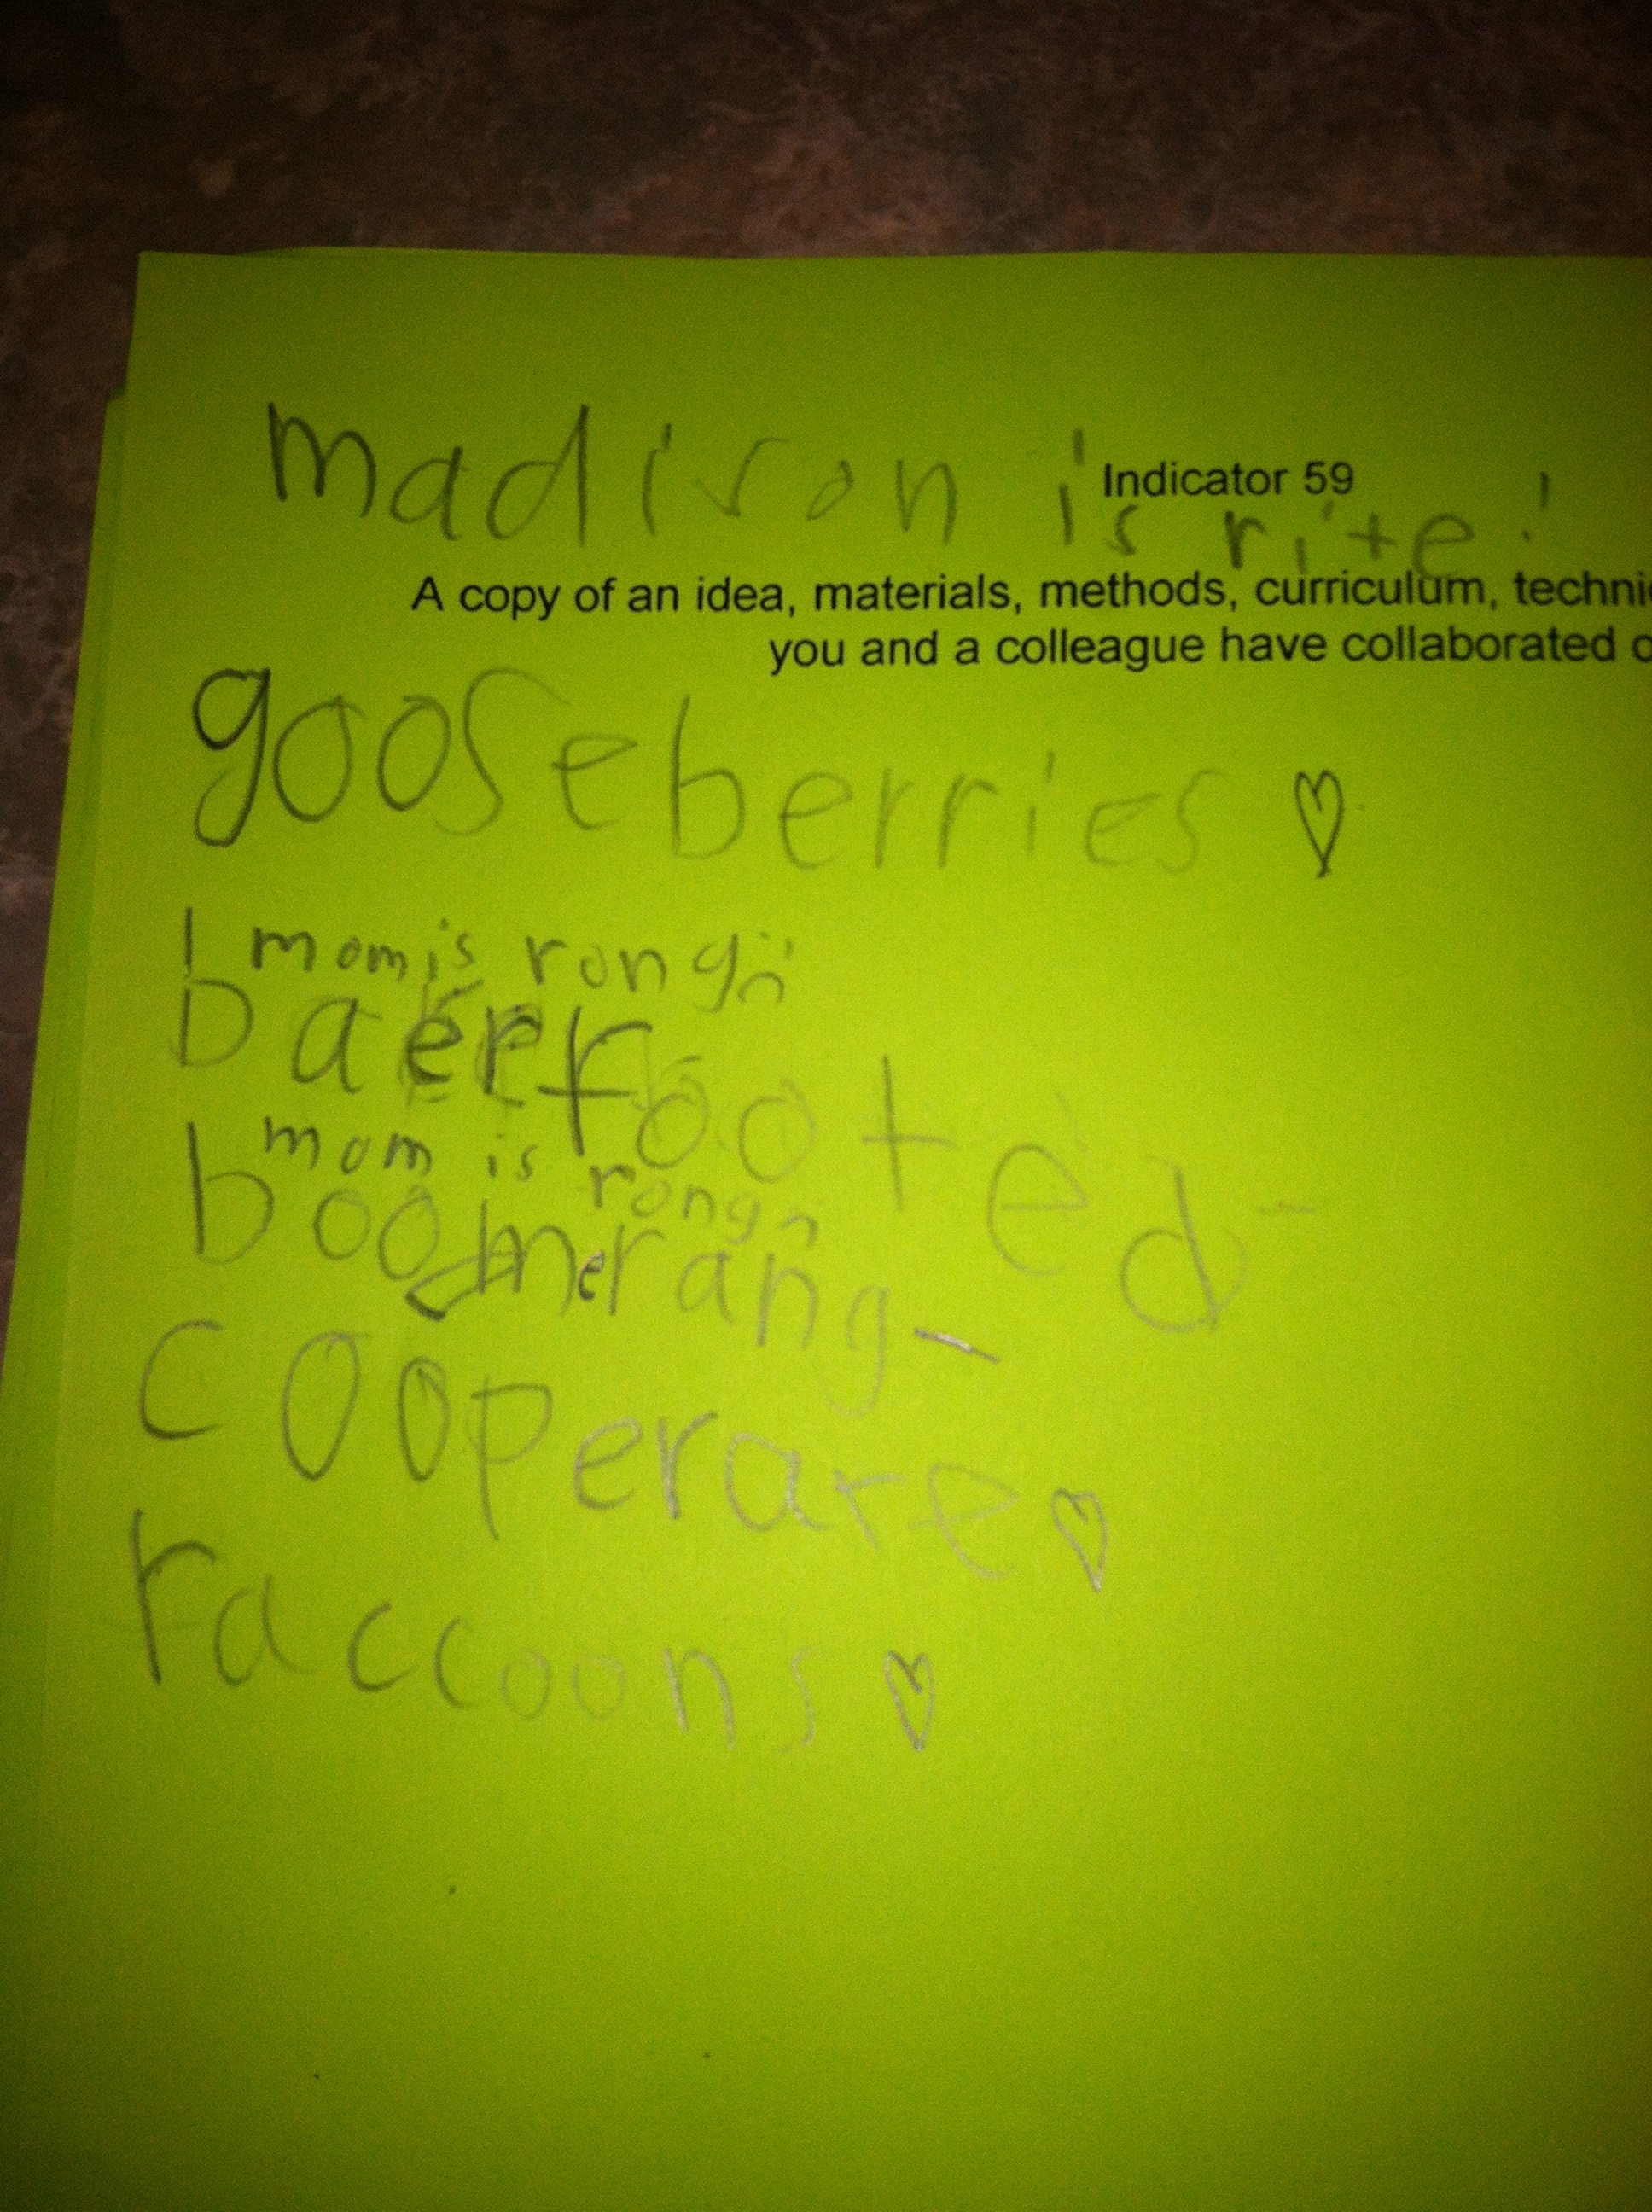 madison is rite!
Indicator 59
A copy of an idea, materials, methods, curriculum, techni
you and a colleague have collaborated o
gooseberries ♡
mom is rong
baerfooted -
mom is rong
boomerang -
cooperare ♡
raccoons ♡